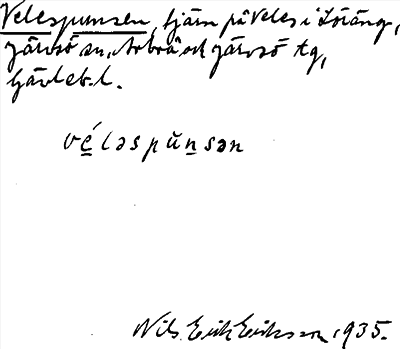 Velespunsen, tjärn på Veles i Löräng,
Järvsö sn, Arbrå och Järvsö tg,
Gävleb. l.
véləspŭnsən
Nils Erik Eriksson, 1935.